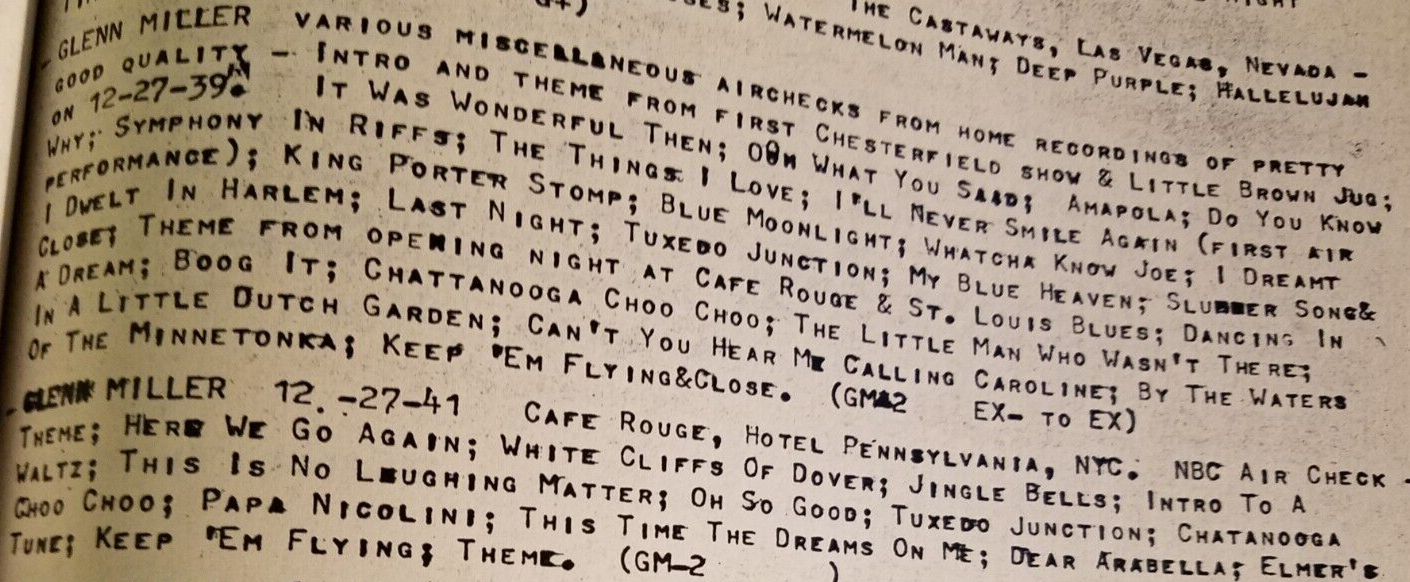 THE CASTAWAYS, LAS VEGAS, NEVADA –
G+) WATERMELON MAN; DEEP PURPLE; HALLELUJAH
-GLENN MILLER VARIOUS MISCELLANEOUS AIRCHECKS FROM HOME RECORDINGS OF PRETTY
GOOD QUALITY – INTRO AND THEME FROM FIRST CHESTERFIELD SHOW & LITTLE BROWN JUG;
ON 12-27-39. IT WAS WONDERFUL THEN; OOH WHAT YOU SAID; AMAPOLA; DO YOU KNOW
WHY; SYMPHONY IN RIFFS; THE THINGS I LOVE; I'LL NEVER SMILE AGAIN (FIRST AIR
PERFORMANCE); KING PORTER STOMP; BLUE MOONLIGHT; WHATCHA KNOW JOE; I DREAMT
I DWELT IN HARLEM; LAST NIGHT; TUXEDO JUNCTION; MY BLUE HEAVEN; SLUMBER SONG&
CLOSE; THEME FROM OPENING NIGHT AT CAFE ROUGE & ST. LOUIS BLUES; DANCING IN
A DREAM; BOOG IT; CHATTANOOGA CHOO CHOO; THE LITTLE MAN WHO WASN'T THERE;
IN A LITTLE DUTCH GARDEN; CAN'T YOU HEAR ME CALLING CAROLINE; BY THE WATERS
OF THE MINNETONKA; KEEP 'EM FLYING&CLOSE. (GM-2 EX- TO EX)
-GLENN MILLER 12.-27-41 CAFE ROUGE, HOTEL PENNSYLVANIA, NYC. NBC AIR CHECK -
THEME; HERE WE GO AGAIN; WHITE CLIFFS OF DOVER; JINGLE BELLS; INTRO TO A
WALTZ; THIS IS NO LAUGHING MATTER; OH SO GOOD; TUXEDO JUNCTION; CHATANOOGA
CHOO CHOO; PAPA NICOLINI; THIS TIME THE DREAMS ON ME; DEAR ARABELLA; ELMER'S
TUNE; KEEP 'EM FLYING; THEME. (GM-2 )